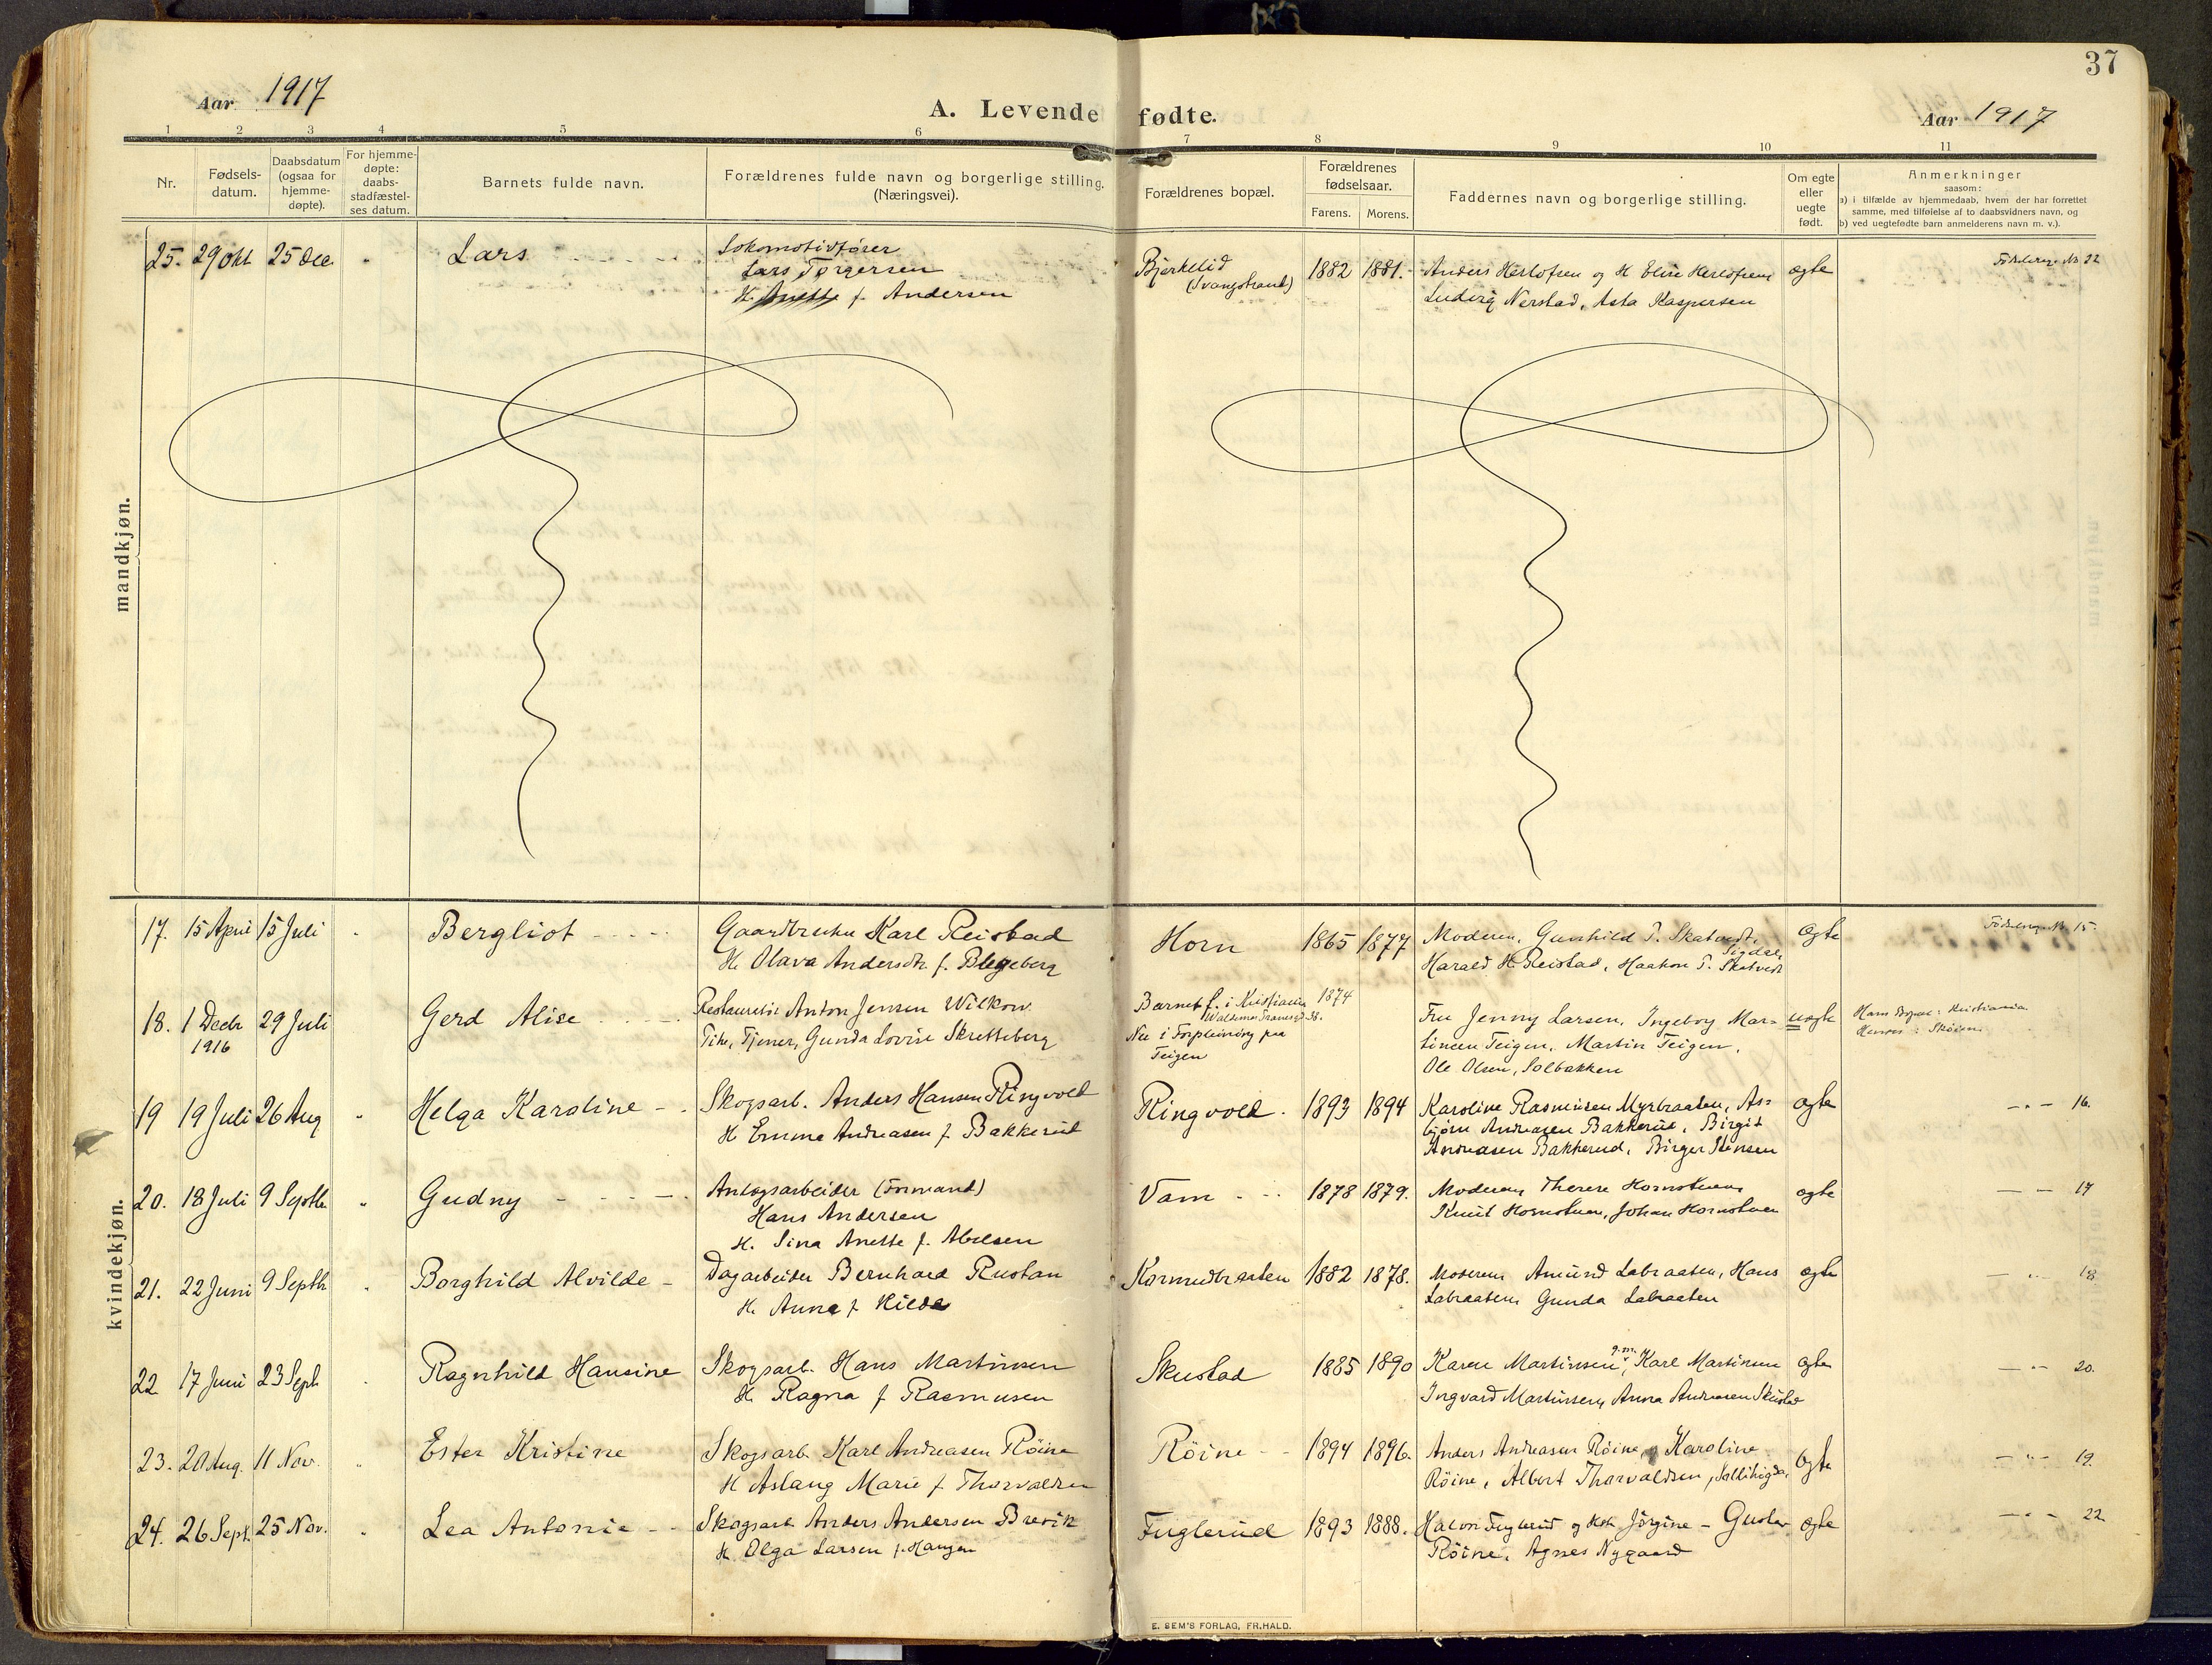 37
Aar 1917
A. Levende fødte.
Aar 1917
1 2 3 4 5 6 7 8 9 10 11
Nr.
Fødsels-
datum.
Daabsdatum
(ogsaa for
hjemme-
døpte).
For hjemme-
døpte:
daabs-
stadfæstel-
ses datum.
Barnets fulde navn.
Forældrenes fulde navn og borgerlige stilling.
(Næringsvei).
Forældrenes bopæl.
Forældrenes
fødselsaar.
Farens. Morens.
Faddernes navn og borgerlige stilling.
Om egte
eller
uegte
født.
Anmerkninger
saasom:
a) i tilfælde av hjemmedaab, hvem der har forrettet
samme, med tilføielse af to daabsvidners navn, og
b) ved uegtefødte barn anmelderens navn m. v.).
mandkjøn.
25. 29 Okt 25 Dec. "
Lars
Lokomotivfører
Lars Torgersen
H. Anette f. Andersen
Bjerkelid
(Svangstrand)
1882 1881.
Anders Herlofsen og H Elise Herlofsen
Ludvig Nerstad, Asta Kaspersen
egte
22
kvindekjøn.
17. 15 April 15 Juli
Bergliot
Gaardbruker Karl Reistad
H. Olava Andersdtr. f. Blegeberg
Horn
1865 1877
Moderen, Gunhild T. Skatvedt, Sigdal,
Harald H. Reistad, Haakon T. Skatvedt
egte
15.
18. 1 Decbr 29 Juli
1916
Gerd Alise
Anton Jensen Wilkow
Pike, Tjener, Gunda Lovise Skretteberg
Barnet f. i Kristiania 1874
Nu i Forpleining paa
Teigen
Fru Jenny Larsen, Ingeborg Mar-
tinsen Teigen, Martin Teigen,
Ole Olsen, Solbakken
uegte
Hans Bopæl: Kristiania
Hennes : Sköien
19 19 Juli 26 Aug "
Helga Karoline
Skogsarb. Anders Hansen Ringvold
H Emma Andreasen f. Bakkerud
Ringvold.
1893 1894
Karoline Rasmusen Myrbraaten, As-
bjørn Andreasen Bakkerud, Birgit
Andreasen Bakkerud, Birger Stensen
egte
— " — 16.
20. 18 Juli 9 Septbr "
Gudny
Anlægsarbeider (Formand)
Hans Andersen
H. Sina Anette f. Abelsen
Vam
1878 1879.
Moderen, Therese Hornstuen,
Knut Hornstuen, Johan Hornstuen
egte
— — 17
21. 22 Juni 9 Septbr "
Borghild Alvilde
Dagarbeider Bernhard Rustan
H. Anna f Kilde
Kormedbraaten
1882 1878.
Moderen Amund Labraaten, Hans
Labraaten, Gunda Labraaten
egte
— " — 18
22 17 Juni 23 Sept.
Ragnhild Hansine
Skogsarb. Hans Martinsen
H. Ragna f Rasmusen
Skustad
1885 1890
Karen Martinsen, g.m. Karl Martinsen
Ingvard Martinsen, Anna Andreasen Skustad
egte
— " — 20.
23. 20 Aug. 11 Nov. "
Ester Kristine
Skogsarb. Karl Andreasen Röine
H Aslaug Marie f. Thorvaldsen
Röine
1894 1896.
Anders Andreasen Röine, og Karoline
Röine, Albert Thorvaldsen,
egte
— " — 19.
24. 26 Sept. 25 Nov. "
Lea Antonie
Skogsarb Anders Andersen Brevik
H. Olga Larsen f. Haugen
Fuglerud
1893 1888.
Halvor Fuglerud og Jörgine — Gustav
Röine, Agnes Nygaard
egte
— " — 22
E. SEM'S FORLAG, FR.HALD.